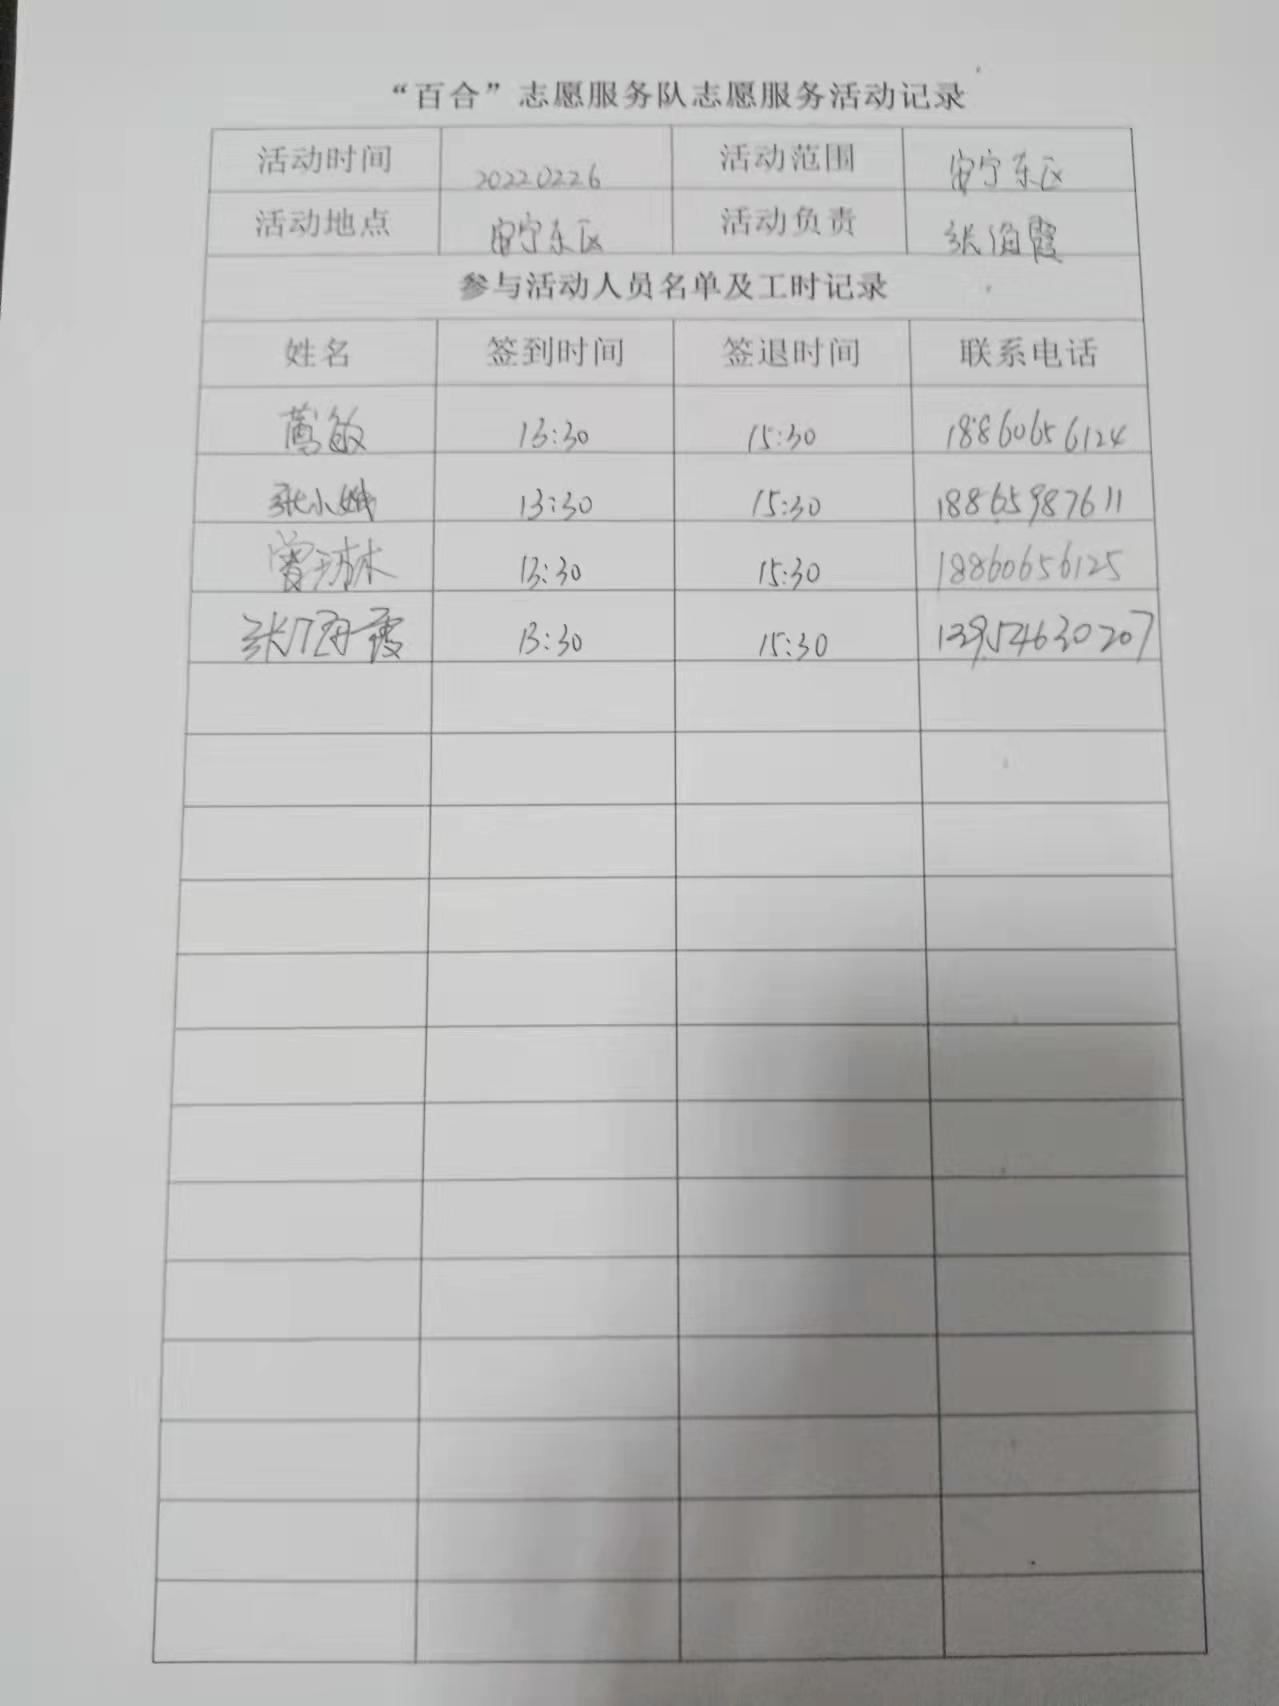 “百合”志愿服务队志愿服务活动记录
活动时间 20220226 活动范围 安宁东区
活动地点 安宁东区 活动负责 张海霞
参与活动人员名单及工时记录
姓名 签到时间 签退时间 联系电话
敏 13:30 15:30 18860656124
张小娥 13:30 15:30 18865987611
曹琳 13:30 15:30 18860656125
张海霞 13:30 15:30 13954630207